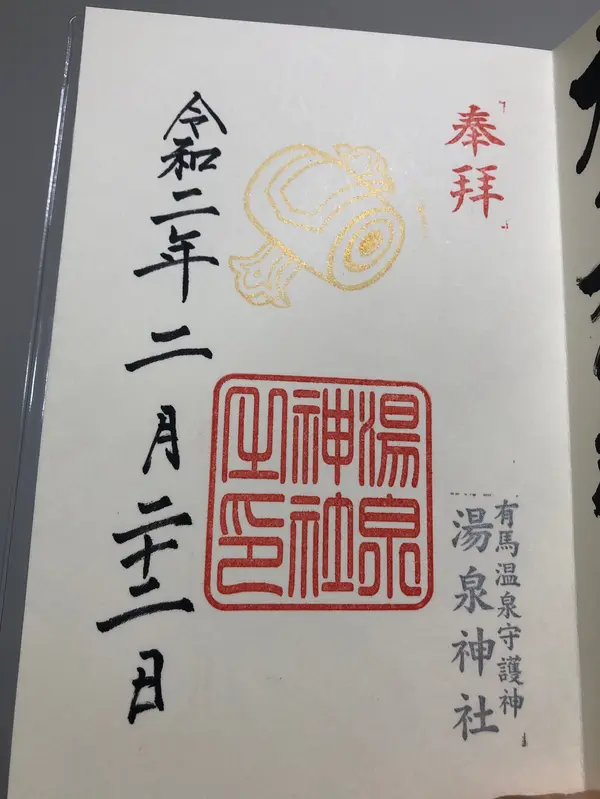 奉拝
有馬温泉守護神
湯泉神社
湯泉
神社
之印
令和二年二月二十二日